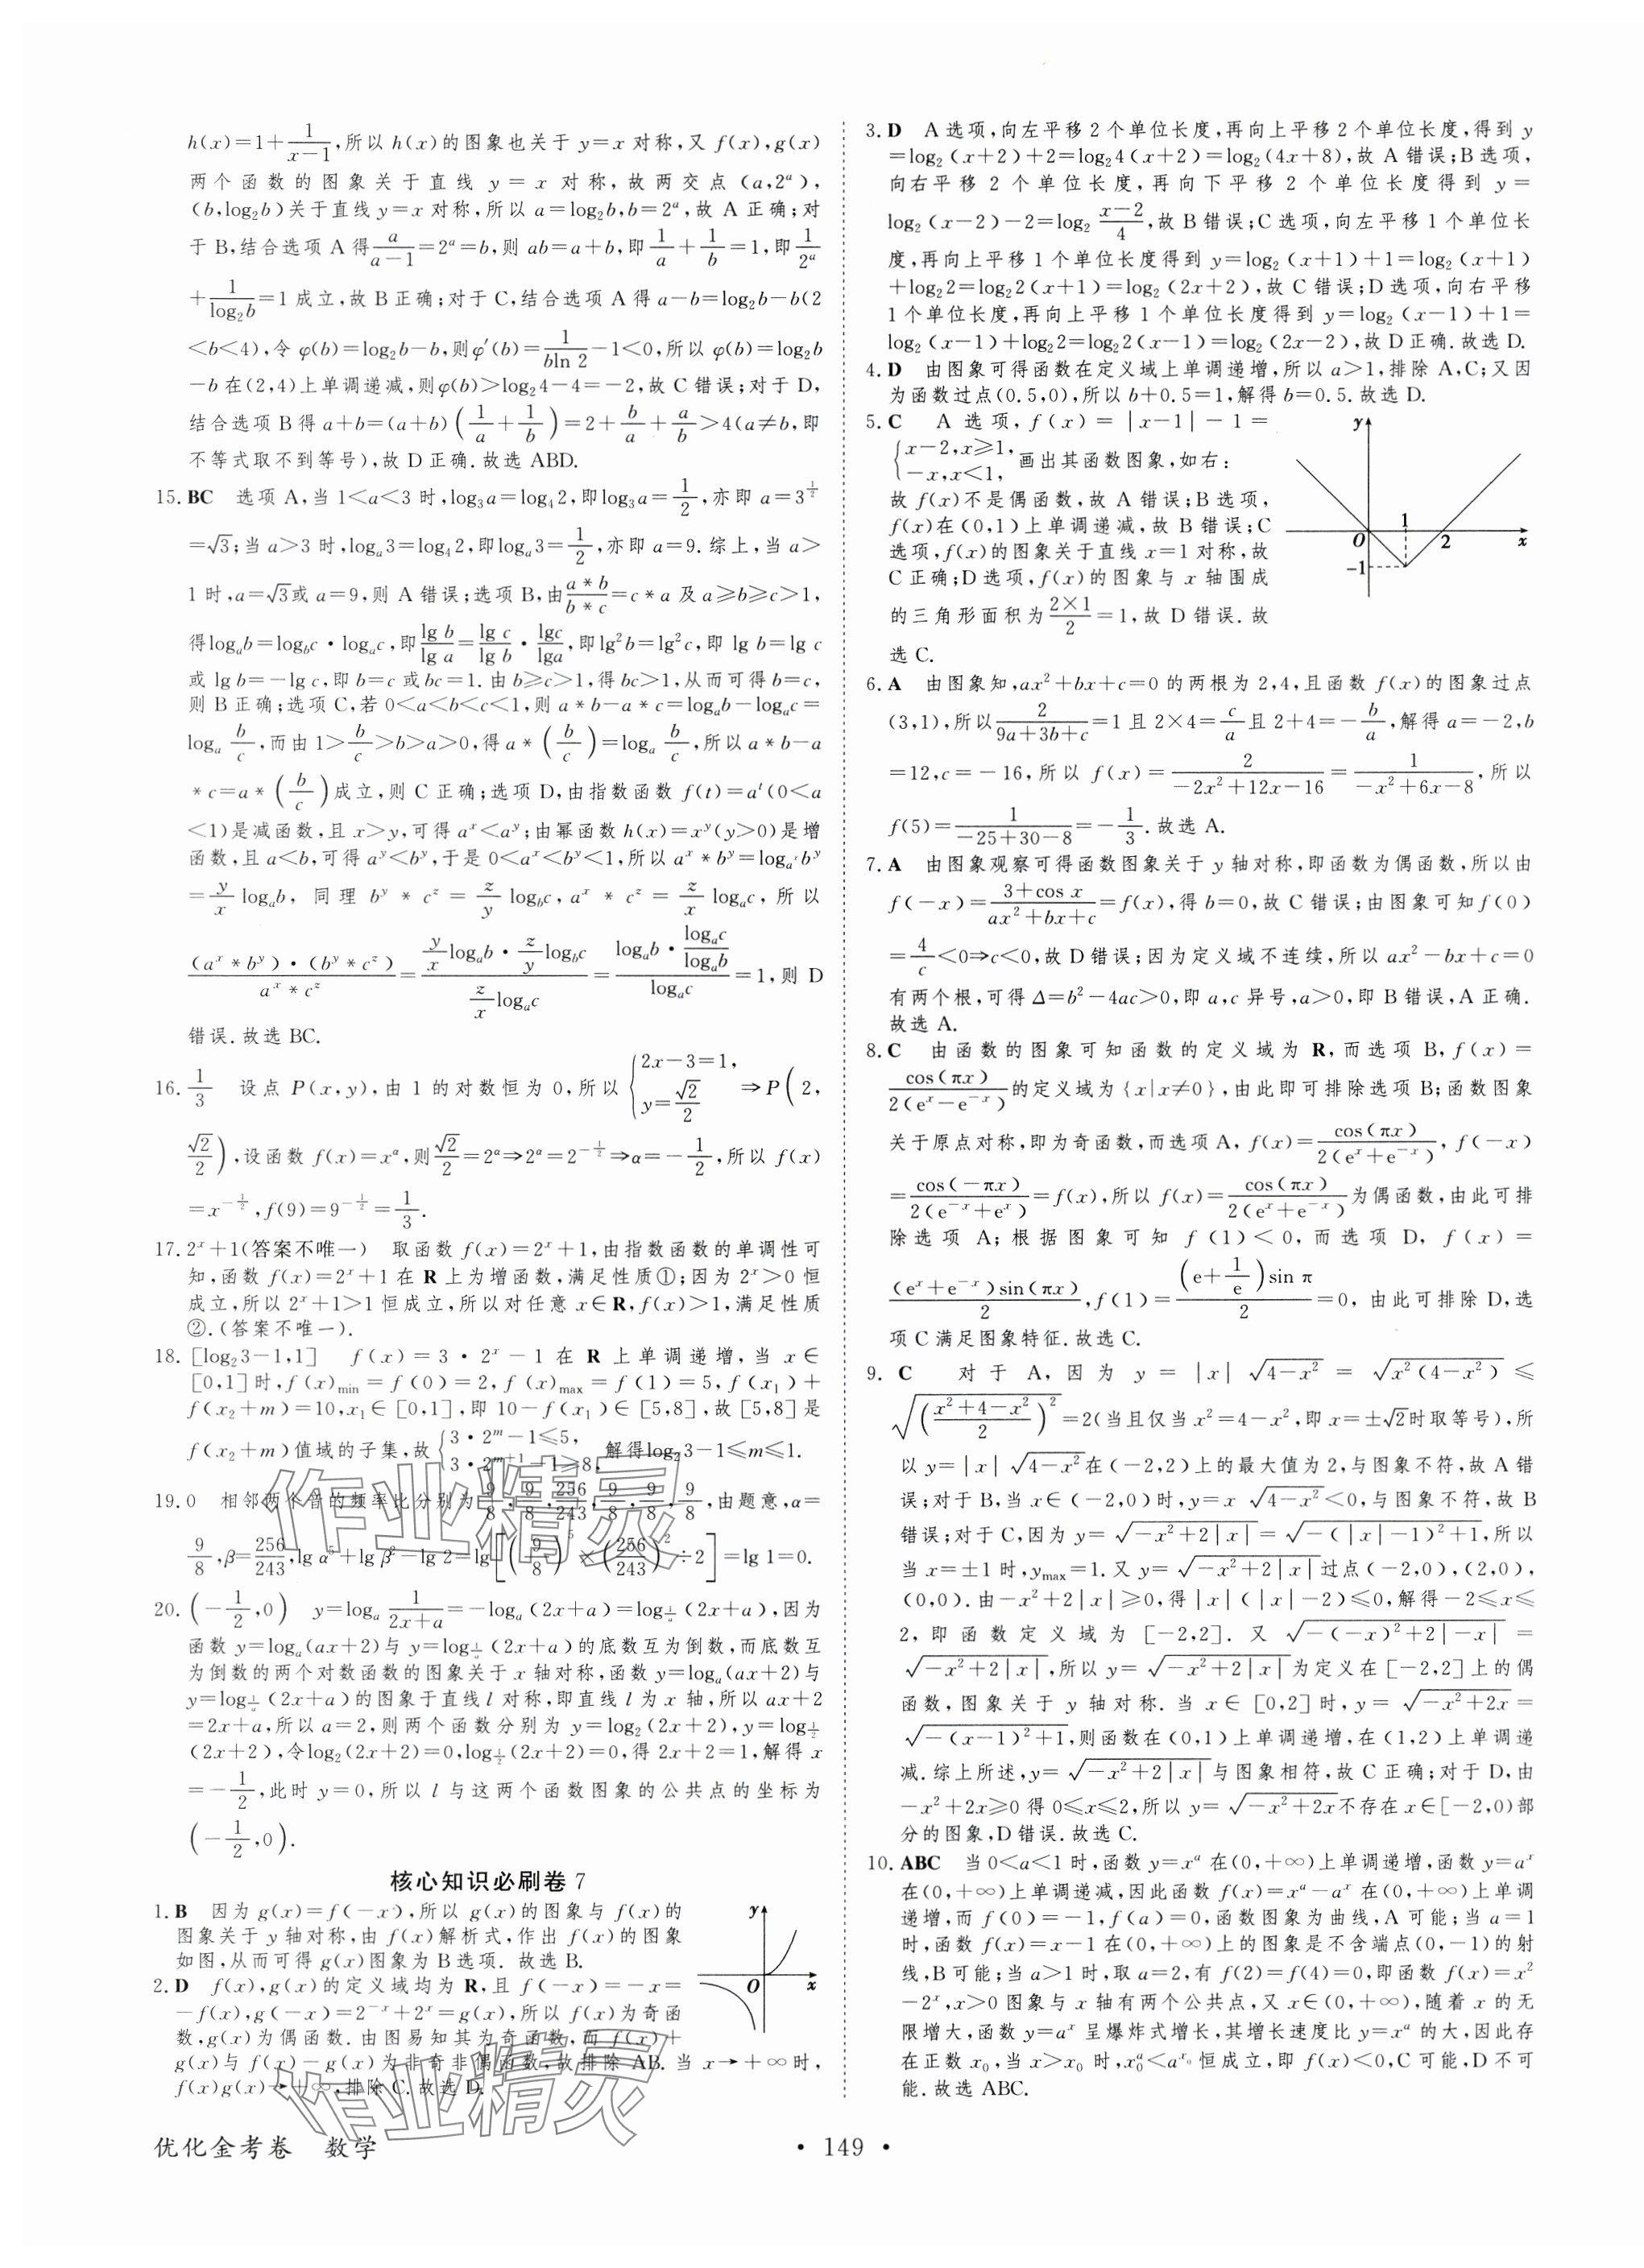 h(x)=1+1/(x-1),所以 h(x)的图象也关于 y=x 对称,又 f(x),g(x)
两个函数的图象关于直线 y=x 对称,故两交点(a,2^a),
(b,log₂b)关于直线 y=x 对称,所以 a=log₂b,b=2^a,故 A 正确;对
于 B,结合选项 A 得 a/(a-1)=2^a=b,则 ab=a+b,即 1/a+1/b=1,即 1/2^a
+1/log₂b=1 成立,故 B 正确;对于 C,结合选项 A 得 a-b=log₂b-b(2
<b<4),令 φ(b)=log₂b-b,则φ′(b)=1/(bln 2)-1<0,所以 φ(b)=log₂b
-b 在(2,4)上单调递减,则φ(b)>log₂4-4=-2,故 C 错误;对于 D,
结合选项 B 得 a+b=(a+b)(1/a+1/b)=2+b/a+a/b>4(a≠b,即
不等式取不到等号),故 D 正确.故选 ABD.
15. BC 选项 A,当 1<a<3 时,log₃a=log₄2,即log₃a=1/2,亦即 a=3^(1/2)
=√3;当 a>3 时,log_a 3=log₄2,即log_a 3=1/2,亦即 a=9.综上,当 a>
1 时,a=√3或 a=9,则 A 错误;选项 B,由(a*b)/(b*c)=c*a 及 a≥b≥c>1,
得log_a b=log_b c·log_a c,即 lg b/lg a=lg c/lg b·lgc/lga,即lg²b=lg²c,即 lg b=lg c
或 lg b=-lg c,即 b=c 或 bc=1.由 b≥c>1,得 bc>1,从而可得 b=c,
则 B 正确;选项 C,若 0<a<b<c<1,则 a*b-a*c=log_a b-log_a c=
log_a b/c,而由 1>b/c>b>a>0,得 a*(b/c)=log_a b/c,所以 a*b-a
*c=a*(b/c)成立,则 C 正确;选项 D,由指数函数 f(t)=a^t(0<a
<1)是减函数,且 x>y,可得 a^x<a^y;由幂函数 h(x)=x^y(y>0)是增
函数,且 a<b,可得 a^y<b^y,于是 0<a^x<b^y<1,所以 a^x*b^y=log_(a^x) b^y
=y/x log_a b,同理 b^y*c^z=z/y log_b c,a^x*c^z=z/x log_a c,所以
(a^x*b^y)·(b^y*c^z)/(a^x*c^z)=(y/x log_a b·z/y log_b c)/(z/x log_a c)=(log_a b·log_a c/log_a b)/log_a c=1,则 D
错误.故选 BC.
16. 1/3 设点 P(x,y),由 1 的对数恒为 0,所以{2x-3=1, y=√2/2 ⇒P(2,
√2/2),设函数 f(x)=x^α,则√2/2=2^α⇒2^α=2^(-1/2)⇒α=-1/2,所以 f(x)
=x^(-1/2),f(9)=9^(-1/2)=1/3.
17. 2^x+1(答案不唯一) 取函数 f(x)=2^x+1,由指数函数的单调性可
知,函数 f(x)=2^x+1 在 R 上为增函数,满足性质①;因为 2^x>0 恒
成立,所以 2^x+1>1 恒成立,所以对任意 x∈R,f(x)>1,满足性质
②.(答案不唯一).
18. [log₂3-1,1] f(x)=3·2^x-1 在 R 上单调递增,当 x∈
[0,1]时,f(x)min=f(0)=2,f(x)max=f(1)=5,f(x₁)+
f(x₂+m)=10,x₁∈[0,1],即 10-f(x₁)∈[5,8],故[5,8]是
f(x₂+m)值域的子集,故{3·2^m-1≤5, 3·2^(m+1)-1≥8, 解得log₂3-1≤m≤1.
19. 0 相邻两个音的频率比分别为 9/8,9/8,256/243,9/8,9/8,9/8,由题意,α=
9/8,β=256/243,lg α⁵+lg β²-lg 2=lg[(9/8)⁵×(256/243)²÷2]=lg 1=0.
20. (-1/2,0) y=log_a 1/(2x+a)=-log_a(2x+a)=log_(1/a)(2x+a),因为
函数 y=log_a(ax+2)与 y=log_(1/a)(2x+a)的底数互为倒数,而底数互
为倒数的两个对数函数的图象关于 x 轴对称,函数 y=log_a(ax+2)与
y=log_(1/a)(2x+a)的图象于直线 l 对称,即直线 l 为 x 轴,所以 ax+2
=2x+a,所以 a=2,则两个函数分别为 y=log₂(2x+2),y=log_(1/2)
(2x+2),令log₂(2x+2)=0,log_(1/2)(2x+2)=0,得 2x+2=1,解得 x
=-1/2,此时 y=0,所以 l 与这两个函数图象的公共点的坐标为
(-1/2,0).
核心知识必刷卷 7
1. B 因为 g(x)=f(-x),所以 g(x)的图象与 f(x)的
图象关于 y 轴对称,由 f(x)解析式,作出 f(x)的图象
如图,从而可得 g(x)图象为 B 选项. 故选 B.
y
O
x
2. D f(x),g(x)的定义域均为 R,且 f(-x)=-x=
-f(x),g(-x)=2^(-x)+2^x=g(x),所以 f(x)为奇函
数,g(x)为偶函数. 由图易知其为奇函数,而 f(x)+
g(x)与 f(x)-g(x)为非奇非偶函数,故排除 AB.当 x→+∞时,
f(x)g(x)→+∞,排除 C.故选 D.
3. D A 选项,向左平移 2 个单位长度,再向上平移 2 个单位长度,得到 y
=log₂(x+2)+2=log₂4(x+2)=log₂(4x+8),故 A 错误;B 选项,
向右平移 2 个单位长度,再向下平移 2 个单位长度得到 y=
log₂(x-2)-2=log₂ (x-2)/4,故 B 错误;C 选项,向左平移 1 个单位长
度,再向上平移 1 个单位长度得到 y=log₂(x+1)+1=log₂(x+1)
+log₂2=log₂2(x+1)=log₂(2x+2),故 C 错误;D 选项,向右平移
1 个单位长度,再向上平移 1 个单位长度得到 y=log₂(x-1)+1=
log₂(x-1)+log₂2=log₂2(x-1)=log₂(2x-2),故 D 正确.故选 D.
4. D 由图象可得函数在定义域上单调递增,所以 a>1,排除 A,C;又因
为函数过点(0.5,0),所以 b+0.5=1,解得 b=0.5.故选 D.
5. C A 选项,f(x)=|x-1|-1=
{x-2,x≥1, -x,x<1, 画出其函数图象,如右:
故 f(x)不是偶函数,故 A 错误;B 选项,
f(x)在(0,1)上单调递减,故 B 错误;C
选项,f(x)的图象关于直线 x=1 对称,故
C 正确;D 选项,f(x)的图象与 x 轴围成
的三角形面积为(2×1)/2=1,故 D 错误.故
选 C.
y
1
O
2
x
-1
6. A 由图象知,ax²+bx+c=0 的两根为 2,4,且函数 f(x)的图象过点
(3,1),所以 2/(9a+3b+c)=1 且 2×4=c/a 且 2+4=-b/a,解得 a=-2,b
=12,c=-16,所以 f(x)=2/(-2x²+12x-16)=1/(-x²+6x-8),所以
f(5)=1/(-25+30-8)=-1/3.故选 A.
7. A 由图象观察可得函数图象关于 y 轴对称,即函数为偶函数,所以由
f(-x)=(3+cos x)/(ax²+bx+c)=f(x),得 b=0,故 C 错误;由图象可知 f(0)
=4/c<0⇒c<0,故 D 错误;因为定义域不连续,所以 ax²-bx+c=0
有两个根,可得 Δ=b²-4ac>0,即 a,c 异号,a>0,即 B 错误,A 正确.
故选 A.
8. C 由函数的图象可知函数的定义域为 R,而选项 B,f(x)=
cos(πx)/2(e^x-e^(-x))的定义域为{x|x≠0},由此即可排除选项 B;函数图象
关于原点对称,即为奇函数,而选项 A,f(x)=cos(πx)/2(e^x+e^(-x)),f(-x)
=cos(-πx)/2(e^(-x)+e^x)=f(x),所以 f(x)=cos(πx)/2(e^x+e^(-x))为偶函数,由此可排
除选项 A;根据图象可知 f(1)<0,而选项 D,f(x)=
(e^x+e^(-x))sin(πx)/2,f(1)=(e+1/e)sin π/2=0,由此可排除 D,选
项 C 满足图象特征.故选 C.
9. C 对于 A,因为 y=|x|√(4-x²)=√(x²(4-x²))≤
√(((x²+4-x²)/2)²)=2(当且仅当 x²=4-x²,即 x=±√2时取等号),所
以 y=|x|√(4-x²)在(-2,2)上的最大值为 2,与图象不符,故 A 错
误;对于 B,当 x∈(-2,0)时,y=x√(4-x²)<0,与图象不符,故 B
错误;对于 C,因为 y=√(-x²+2|x|)=√(-(|x|-1)²+1),所以
当 x=±1 时,ymax=1.又 y=√(-x²+2|x|)过点(-2,0),(2,0),
(0,0).由-x²+2|x|≥0,得|x|(|x|-2)≤0,解得-2≤x≤
2,即函数定义域为[-2,2].又√(-(-x)²+2|-x|)=
√(-x²+2|x|),所以 y=√(-x²+2|x|)为定义在[-2,2]上的偶
函数,图象关于 y 轴对称.当 x∈[0,2]时,y=√(-x²+2x)=
√(-(x-1)²+1),则函数在(0,1)上单调递增,在(1,2)上单调递
减.综上所述,y=√(-x²+2|x|)与图象相符,故 C 正确;对于 D,由
-x²+2x≥0 得 0≤x≤2,所以 y=√(-x²+2x)不存在 x∈[-2,0)部
分的图象,D 错误.故选 C.
10. ABC 当 0<a<1 时,函数 y=x^a 在(0,+∞)上单调递增,函数 y=a^x
在(0,+∞)上单调递减,因此函数 f(x)=x^a-a^x 在(0,+∞)上单调
递增,而 f(0)=-1,f(a)=0,函数图象为曲线,A 可能;当 a=1
时,函数 f(x)=x-1 在(0,+∞)上的图象是不含端点(0,-1)的射
线,B 可能;当 a>1 时,取 a=2,有 f(2)=f(4)=0,即函数 f(x)=x²
-2^x,x>0 图象与 x 轴有两个公共点,又 x∈(0,+∞),随着 x 的无
限增大,函数 y=a^x 呈爆炸式增长,其增长速度比 y=x^a 的大,因此存
在正数 x₀,当 x>x₀ 时,x₀^a<a^(x₀)恒成立,即 f(x)<0,C 可能,D 不可
能.故选 ABC.
作业精灵
作业精灵
优化金考卷 数学
• 149 •